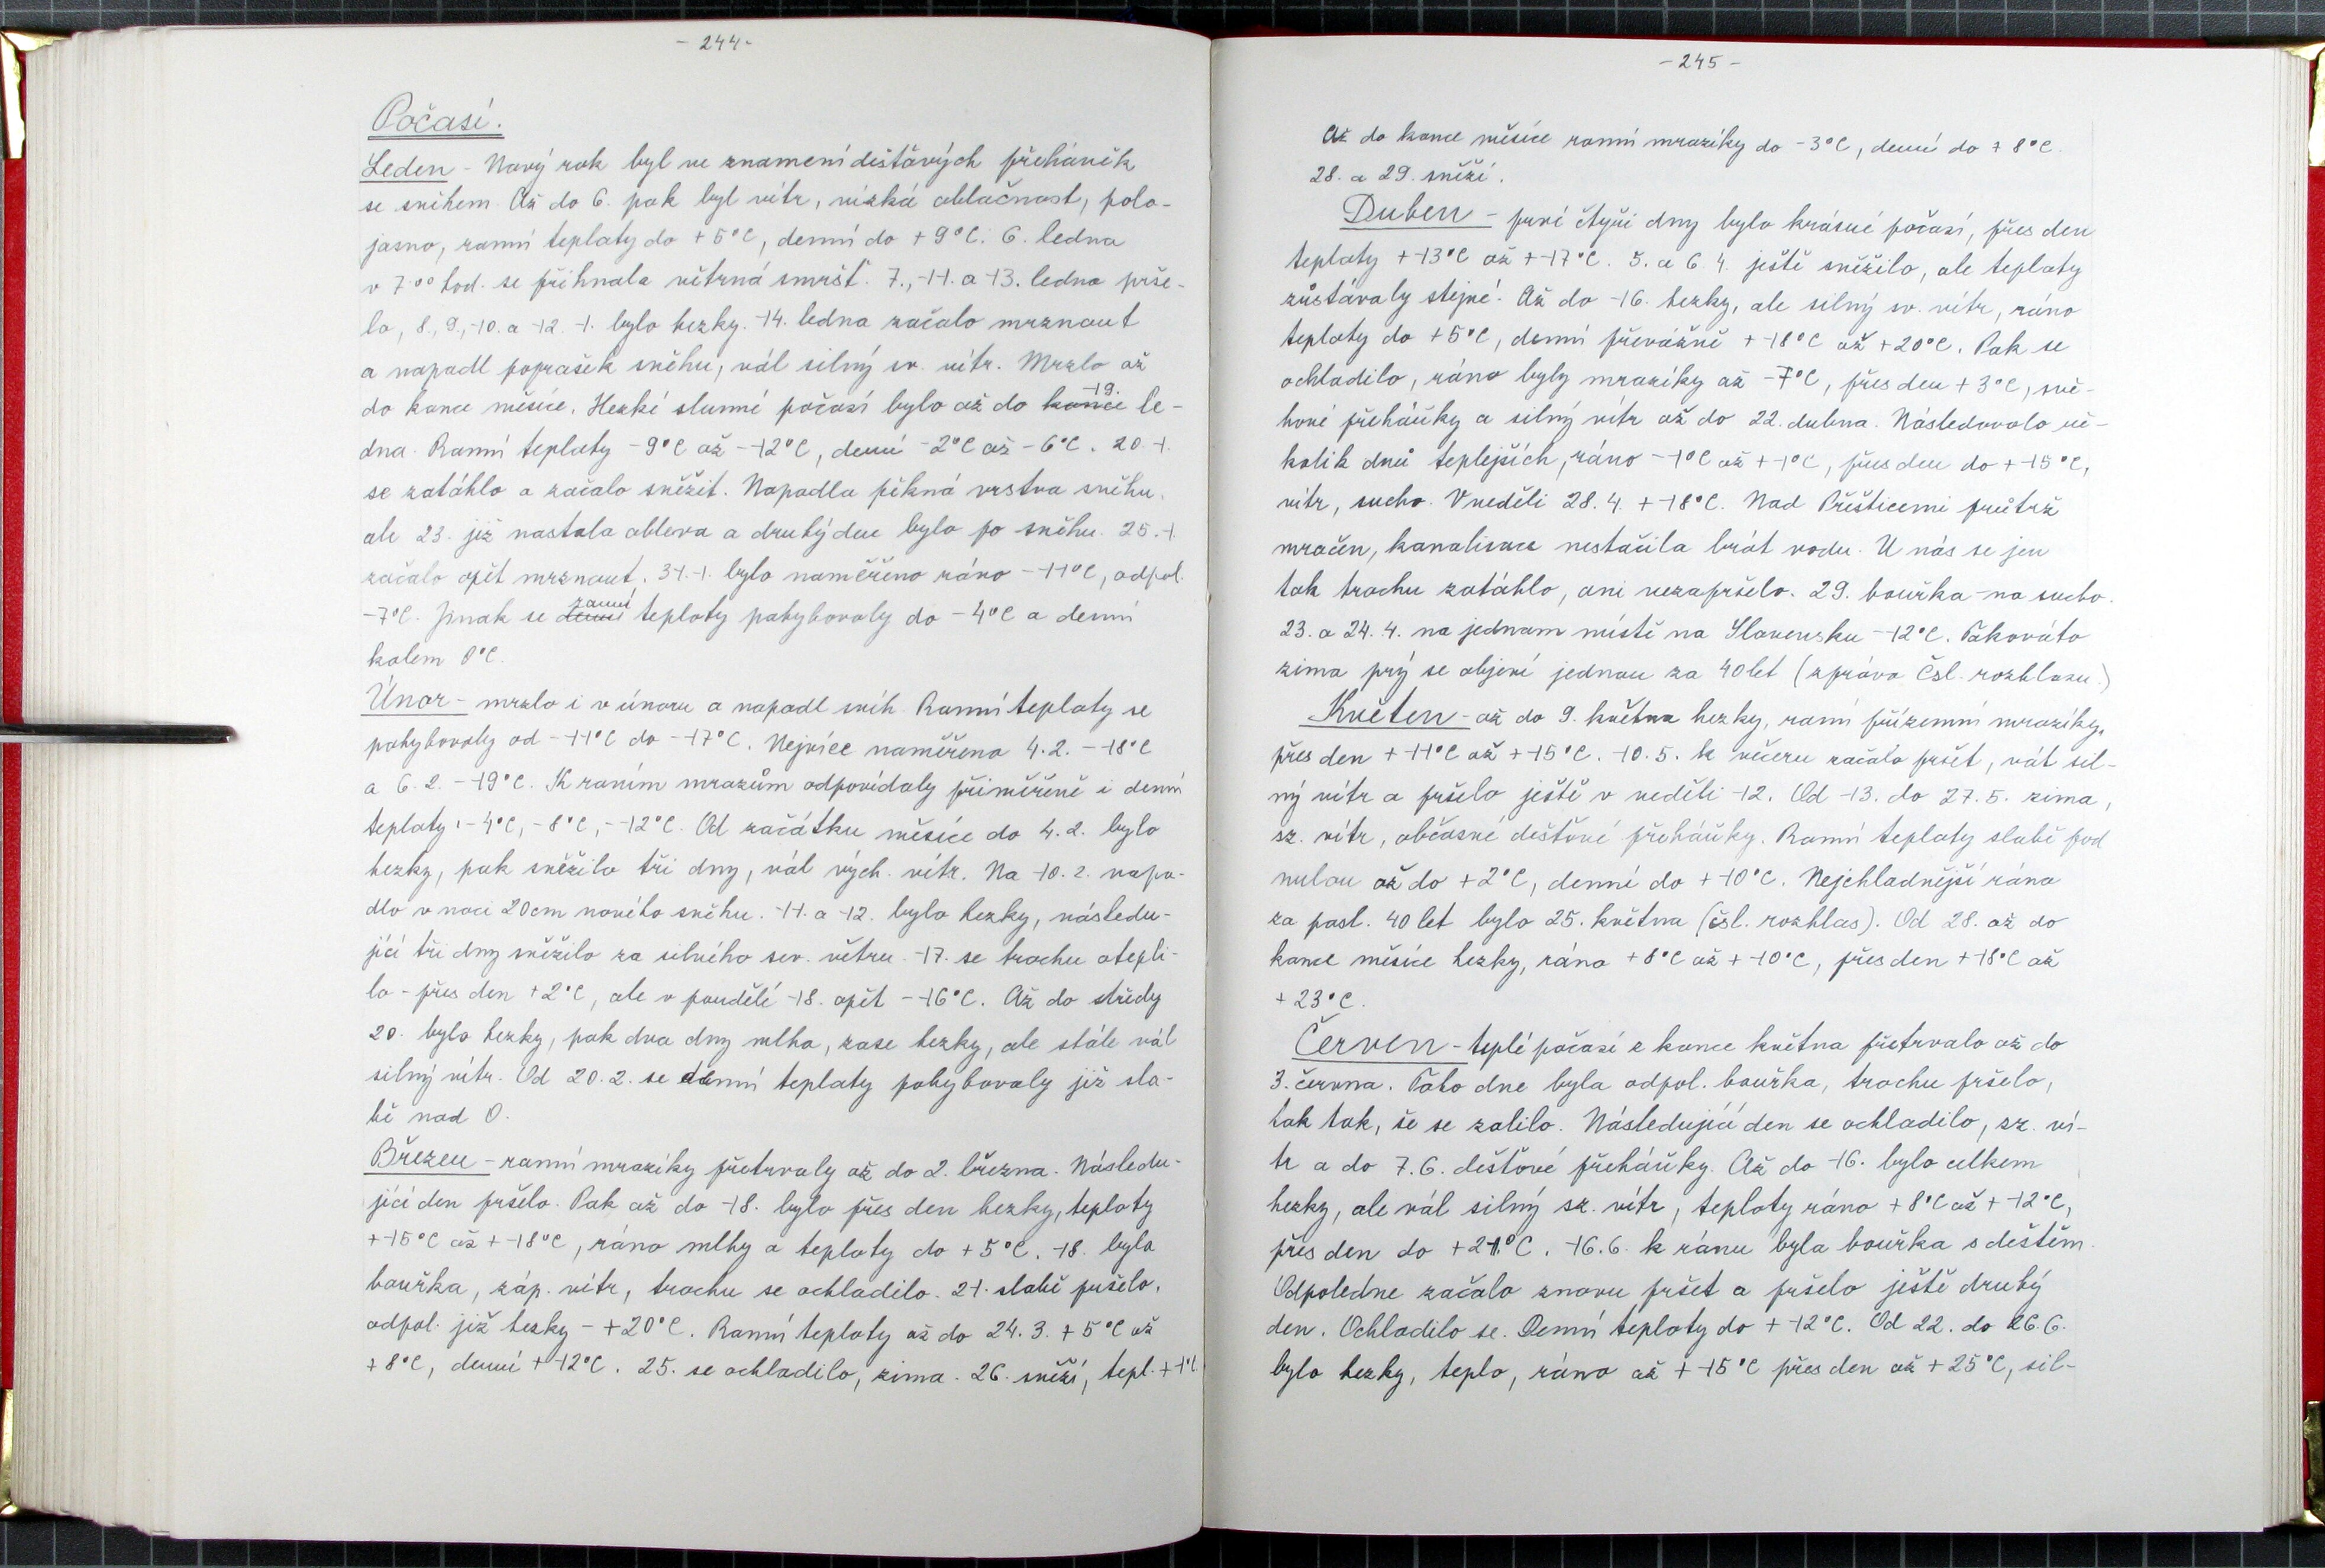 - 244 -
Počasí.
Leden - Nový rok byl ve znamení dešťových přeháněk
se sněhem. Až do 6. pak byl vítr, nízká oblačnost, polo-
jasno, ranní teploty do +5°C, denní do +9°C. 6. ledna
v 7⁰⁰ hod. se přihnala větrná smršť. 7., 11. a 13. ledna prše-
lo, 8., 9., 10. a 12. 1. bylo hezky. 14. ledna začalo mrznout
a napadl poprašek sněhu, vál silný sv. vítr. Mrzlo až
do konce měsíce. Hezké slunné počasí bylo až do konce 19. le-
dna. Ranní teploty -9°C až -12°C, denní -2°C až -6°C. 20.1.
se zatáhlo a začalo sněžit. Napadla pěkná vrstva sněhu,
ale 23. již nastala obleva a druhý den bylo po sněhu. 25.1.
začalo opět mrznout. 31.1. bylo naměřeno ráno -11°C, odpol.
-7°C. Jinak se denní ranní teploty pohybovaly do -4°C a denní
kolem 0°C.
Únor - mrzlo i v únoru a napadl sníh. Ranní teploty se
pohybovaly od -11°C do -17°C. Nejvíce naměřeno 4.2. -18°C
a 6.2. -19°C. K raním mrazům odpovídaly přiměřeně i denní
teploty: -4°C, -8°C, -12°C. Od začátku měsíce do 4.2. bylo
hezky, pak sněžilo tři dny, vál vých. vítr. Na 10.2. napa-
dlo v noci 20cm nového sněhu. 11. a 12. bylo hezky, následu-
jící tři dny sněžilo za silného sev. větru. 17. se trochu otepli-
lo - přes den +2°C, ale v pondělí 18. opět -16°C. Až do středy
20. bylo hezky, pak dva dny mlha, zase hezky, ale stále vál
silný vítr. Od 20.2. se denní teploty pohybovaly již sla-
bě nad 0.
Březen - ranní mrazíky přetrvaly až do 2. března. Následu-
jící den pršelo. Pak až do 18. bylo přes den hezky, teploty
+15°C až +18°C, ráno mlhy a teploty do +5°C. 18. byla
bouřka, záp. vítr, trochu se ochladilo. 21. slabě pršelo,
odpol. již hezky - +20°C. Ranní teploty až do 24.3. +5°C až
+8°C, denní +12°C. 25. se ochladilo, zima. 26. sněží, tepl. +1°C
- 245 -
Až do konce měsíce ranní mrazíky do -3°C, denní do +8°C.
28. a 29. sněží.
Duben - první čtyři dny bylo krásné počasí, přes den
teploty +13°C až +17°C. 5. a 6. 4. ještě sněžilo, ale teploty
zůstávaly stejné. Až do 16. hezky, ale silný sv. vítr, ráno
teploty do +5°C, denní převážně +18°C až +20°C. Pak se
ochladilo, ráno byly mrazíky až -7°C, přes den +3°C, sně-
hové přeháňky a silný vítr až do 22. dubna. Následovalo ně-
kolik dnů teplejších, ráno -1°C až +1°C, přes den do +15°C,
vítr, sucho. V neděli 28.4. +18°C. Nad Přešticemi průtrž
mračen, kanalisace nestačila brát vodu. U nás se jen
tak trochu zatáhlo, ani nezapršelo. 29. bouřka - na sucho.
23. a 24.4. na jednom místě na Slovensku -12°C. Takováto
zima prý se objeví jednou za 40 let (zpráva Čsl. rozhlasu.)
Květen - až do 9. května hezky, ranní přízemní mrazíky,
přes den +11°C až +15°C. 10.5. k večeru začalo pršet, vát sil-
ný vítr a pršelo ještě v neděli 12. Od 13. do 27.5. zima,
sz. vítr, občasné dešťové přeháňky. Ranní teploty slabě pod
nulou až do +2°C, denní do +10°C. Nejchladnější ráno
za posl. 40 let bylo 25. května (čsl. rozhlas). Od 28. až do
konce měsíce hezky, ráno +8°C až +10°C, přes den +18°C až
+23°C.
Červen - teplé počasí z konce května přetrvalo až do
3. června. Toho dne byla odpol. bouřka, trochu pršelo,
tak tak, že se zalilo. Následující den se ochladilo, sz. ví-
tr a do 7.6. dešťové přeháňky. Až do 16. bylo celkem
hezky, ale vál silný sz. vítr, teploty ráno +8°C až +12°C,
přes den do +21°C. 16.6. k ránu byla bouřka s deštěm.
Odpoledne začalo znovu pršet a pršelo ještě druhý
den. Ochladilo se. Denní teploty do +12°C. Od 22. do 26.6.
bylo hezky, teplo, ráno až +15°C přes den až +25°C, sil-